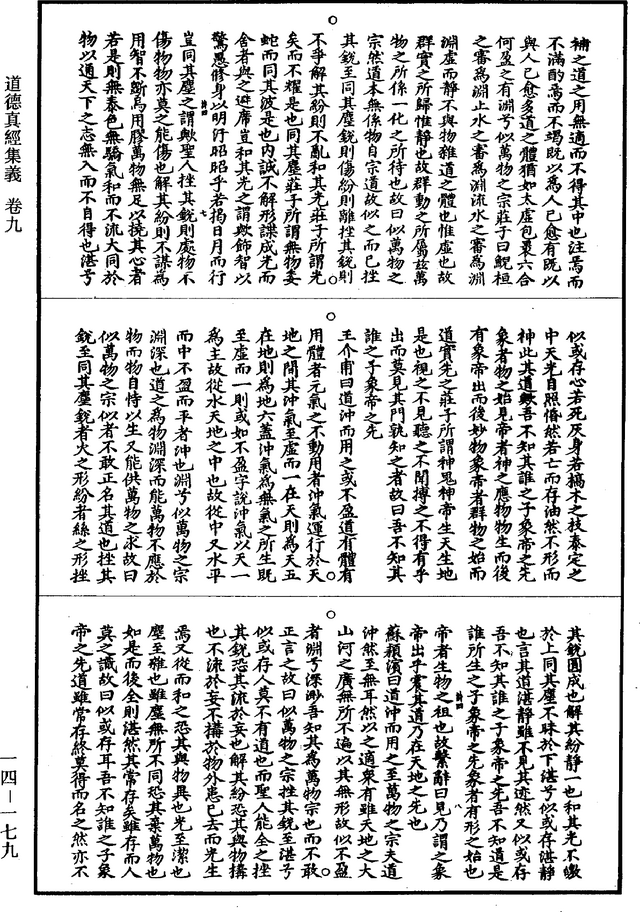 補之道之用無適而不得其中也注焉而
不滿酌焉而不竭既以為人已愈有既以
與人已愈多道之體猶如太虛包裹六合
何盈之有淵兮似萬物之宗莊子曰鯢桓
之審為淵止水之審為淵流水之審為淵
淵虛而靜不與物雜道之體也惟虛也故
群實之所歸惟靜也故群動之所屬兹萬
物之所係一化之所待也故曰似萬物之
宗然道本無係物自宗道故似之而已挫
其銳至同其塵銳則傷紛則離挫其銳則
不爭解其紛則不亂和其光莊子所謂光
矣而不耀是也同其塵莊子所謂無物委
蛇而同其波是也內誠不解形諜成光而
舍者與之避席豈和其光之謂歟飾智以
驚愚修身以明汙昭昭乎若揭日月而行
豈同其塵之謂歟聖人挫其銳則處物不
傷物物亦莫之能傷也解其紛則不謀為
用智不斲為用膠萬物無足以撓其心者
若是則無泰色無驕氣和而不流大同於
物以通天下之志無入而不自得也湛兮
似或存心若死灰身若槁木之枝泰定之
中天光自照惛然若亡而存油然不形而
神此其道歟吾不知其誰之子象帝之先
象者物之始見帝者神之應物物生而後
有象帝出而後妙物象帝者群物之始而
道實先之莊子所謂神鬼神帝生天生地
是也視之不見聽之不聞搏之不得有乎
出而莫見其門孰知之者故曰吾不知其
誰之子象帝之先
王介甫曰道沖而用之或不盈道有體有
用體者元氣之不動用者沖氣運行於天
地之間其沖氣至虛而一在天則為天五
在地則為地六蓋沖氣為無氣之所生既
至虛而一則或如不盈字說沖氣以天一
為主故從水天地之中也故從中又水平
而中不盈而平者沖也淵兮似萬物之宗
淵深也道之為物淵深而能萬物不應於
物而物自恃以生又能供萬物之求故曰
似萬物之宗似者不敢正名其道也挫其
銳至同其塵銳者火之形紛者絲之形挫
其銳圓成也解其紛靜一也和其光不皦
於上同其塵不昧於下湛兮似或存湛靜
也言其道湛靜雖不見其迹然又似或存
吾不知其誰之子象帝之先吾不知道是
誰所生之子象帝之先象者有形之始也
帝者生物之祖也故繫辭曰見乃謂之象
帝出乎震其道乃在天地之先也
蘇潁濱曰道沖而用之至萬物之宗夫道
沖然至無耳然以之適衆有雖天地之大
山河之廣無所不遍以其無形故似不盈
者淵兮深渺吾知其為萬物宗也而不敢
正言之故曰似萬物之宗挫其銳至湛兮
似或存人莫不有道也而聖人能全之挫
其銳恐其流於妄也解其紛恐其與物搆
也不流於妄不搆於物外患已去而光生
焉又從而和之恐其與物異也光至潔也
塵至雜也雖塵無所不同恐其棄萬物也
如是而後全則湛然其常存矣雖存而人
莫之識故曰似或存耳吾不知誰之子象
帝之先道雖常存終莫得而名之然亦不
道德真經集義 卷九
一四—一七九